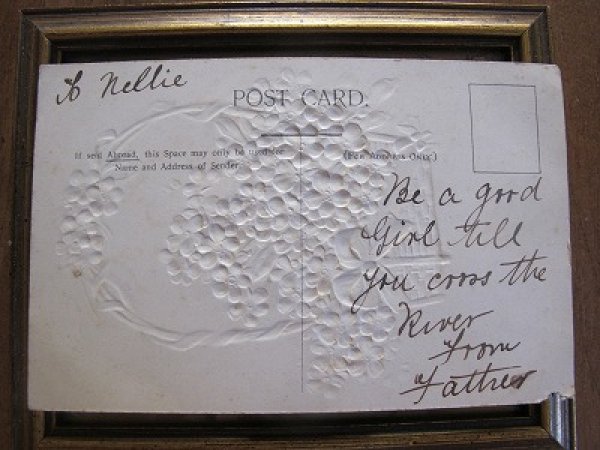 To Nellie
POST CARD.
If sent Abroad, this Space may only be used for
Name and Address of Sender.
(For Address Only.)
Be a good
Girl till
you cross the
River
From
Father